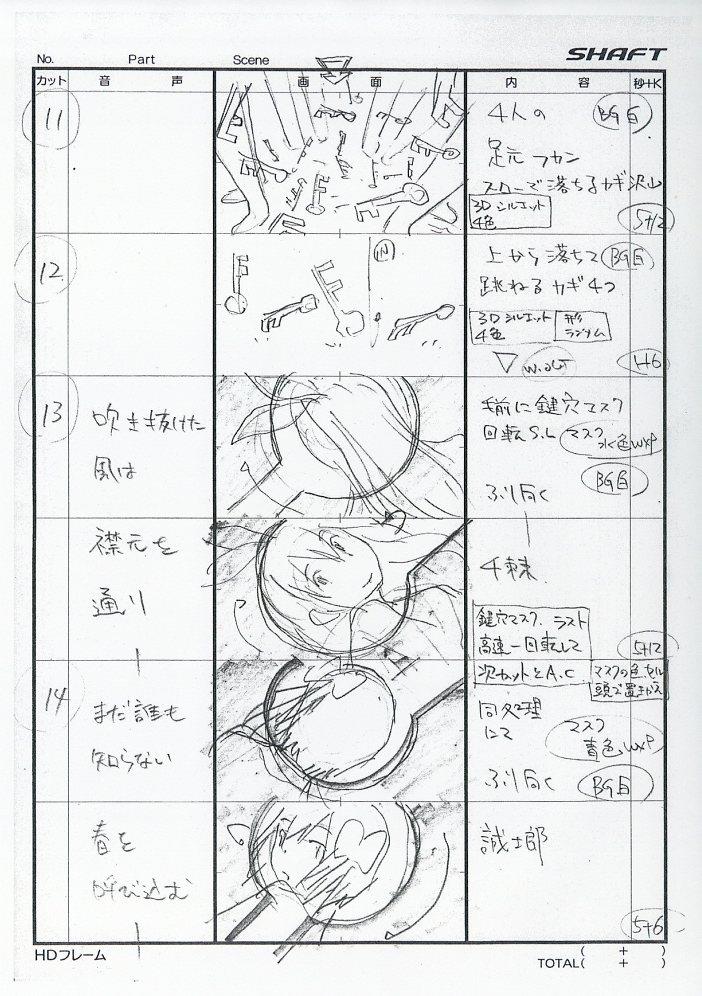 No. Part Scene SHAFT
カット 音 声 画 面 内 容 秒+K
11
4人の BG白
足元フカン
スローで落ちるカギ沢山
3D シルエット
4色
5+12
12
IN
上から落ちて BG白
跳ねるカギ4つ
3D シルエット
4色
形
ランダム
W.OUT
1+6
13
吹き抜けた
風は
手前に鍵穴マスク
回転S.L マスク
水色WXP
BG白
ふり向く
襟元を
通り
千棘
鍵穴マスク、ラスト
高速一回転して
5+12
14
次カットとA.C
マスクの色セル
頭で置きかえ
まだ誰も
知らない
同処理
にて
マスク
青色WXP
ふり向く BG白
春を
呼び込む
誠士郎
5+6
HDフレーム
( + )
TOTAL( + )